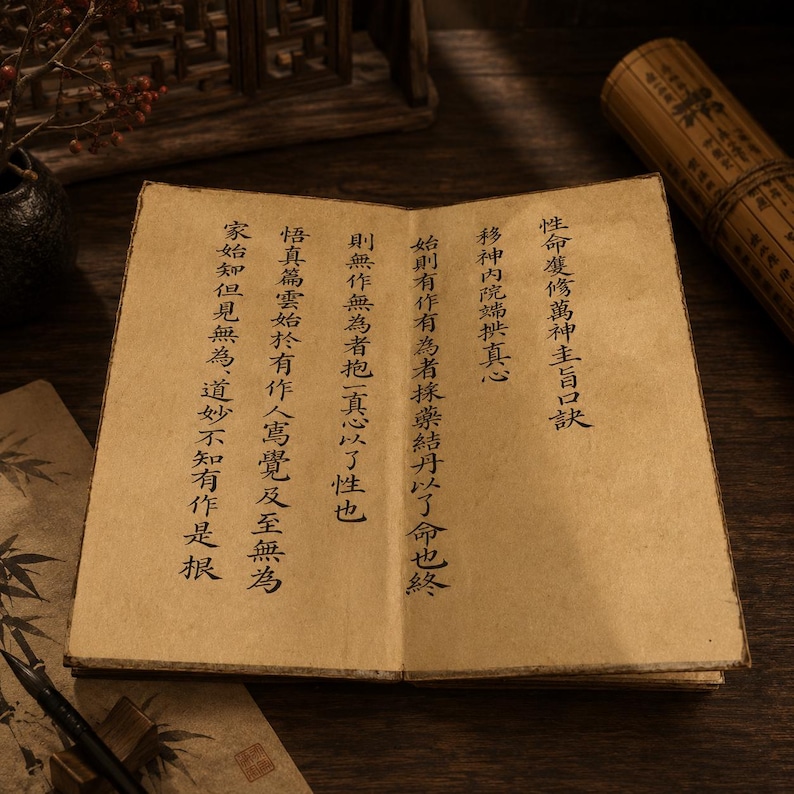 性命獲修萬神圭旨口訣
移神內院端拱真心
始則有作有為者採藥結丹以了命也終
則無作無為者抱一真心以了性也
悟真篇雲始於有作人寫覺及至無為
家始知但見無為、道妙不知有作是根